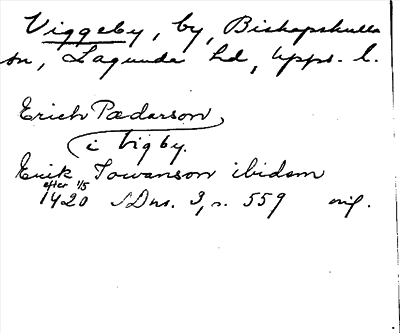 Viggeby, by, Biskopskulla
sn, Lagunda hd, Upps. l.
Erich Pædarson
i vigby.
Erik Jowanson ibidem
efter 1/5
1420 SDns. 3, s. 559 orig.